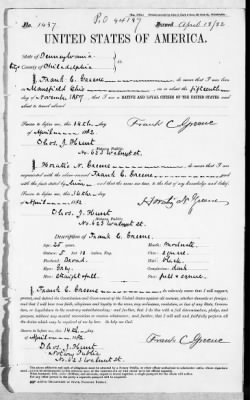 No. 1437
Issued, April 15/82
UNITED STATES OF AMERICA.
State of Pennsylvania
City County of Philadelphia
I, Frank C. Greene, do swear that I was born
in Mansfield Ohio, on or about the fifteenth
day of November 1857, that I am a NATIVE AND LOYAL CITIZEN OF THE UNITED STATES and about
to travel abroad
Sworn to before me, this 14th
day of April 1882
Frank C. Greene
Chas. J. Hunt
Notary Public.
No. 623 Walnut st.
I, Horatio N. Greene, do swear that I am
acquainted with the above-named Frank C. Greene
and with the facts stated by him, and that the same are true, to the best of my knowledge and belief.
Sworn to before me, this 14th
day of April 1882
Horatio N. Greene
Chas. J. Hunt
Notary Public.
No. 623 Walnut st.
Description of Frank C. Greene
Age: 25 years.
Mouth: Moderate
Stature: 5 feet
Chin: square
Forehead: Broad.
Hair: Black
Eyes: Grey.
Complexion: dark
Nose:
Face: full & square.
I, Frank C. Greene, do solemnly swear that I will support,
protect, and defend the Constitution and Government of the United States against all enemies, whether domestic or foreign;
and that I will bear true faith, allegiance, and loyalty to the same, any ordinance, resolution, or law of any State, Convention,
or Legislature to the contrary notwithstanding; and further, that I do this with a full determination, pledge, and
purpose, without any mental reservation or evasion whatsoever; and further, that I will well and faithfully perform all
the duties which may be required of me by law: So help me God.
Sworn to before me, this 14th
day of April 1882
Frank C. Greene
Chas. J. Hunt
Notary Public
No. 623 Walnut st.